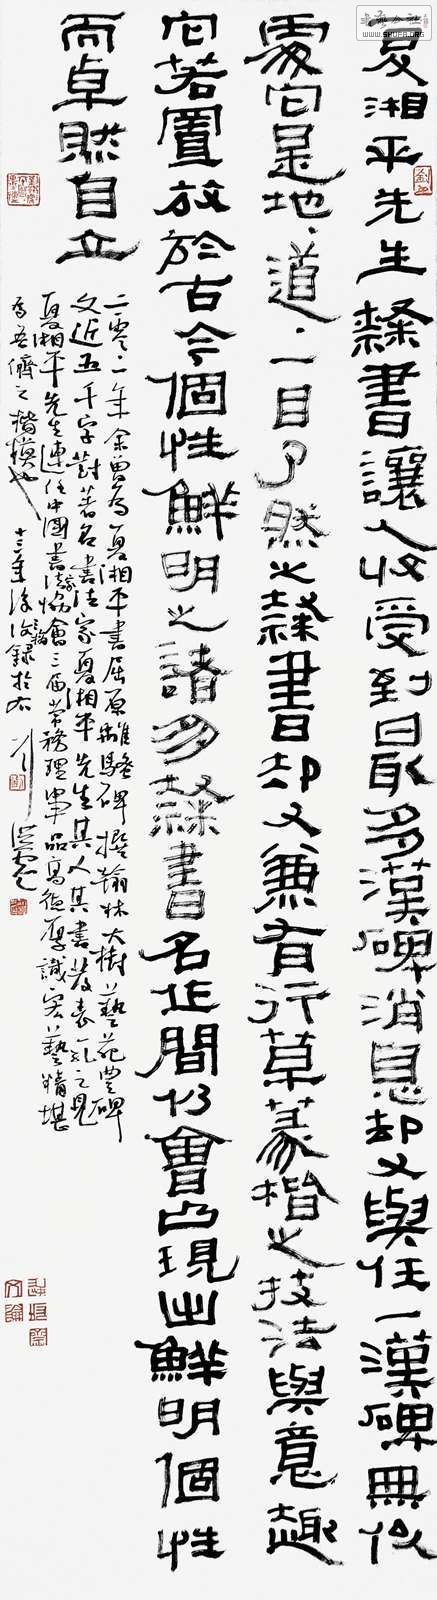 夏湘平先生隸書讓人收受到最多漢碑消息却又與任一漢碑無似
處它是地道一目了然之隸書却又兼有行草篆楷之技法與意趣
它若置放於古今個性鮮明之諸多隸書名作間仍會凸現出鮮明個性
而卓然自立
二零一年余曾為夏湘平書屈原離騷碑撰翰林大樹藝苑豐碑
文近五千字對著名書法家夏湘平先生其人其書發表一己之見
夏湘平先生連任中國書法家協會三屆常務理事品高德厚識宏藝精堪
為吾儕之楷模也
書法公社
WWW.SHUFA.ORG